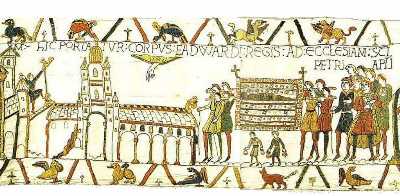 HIC PORTATUR: CORPUS: EADWARDI: REGIS: AD: ECCLESIAM: SCI
PETRI APLI